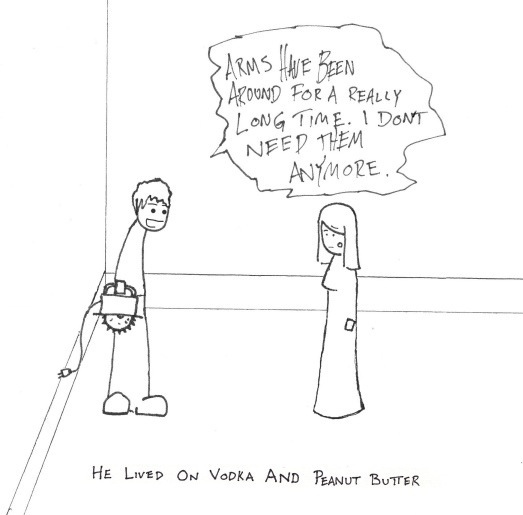 ARMS HAVE BEEN
AROUND FOR A REALLY
LONG TIME. I DONT
NEED THEM
ANYMORE.
HE LIVED ON VODKA AND PEANUT BUTTER